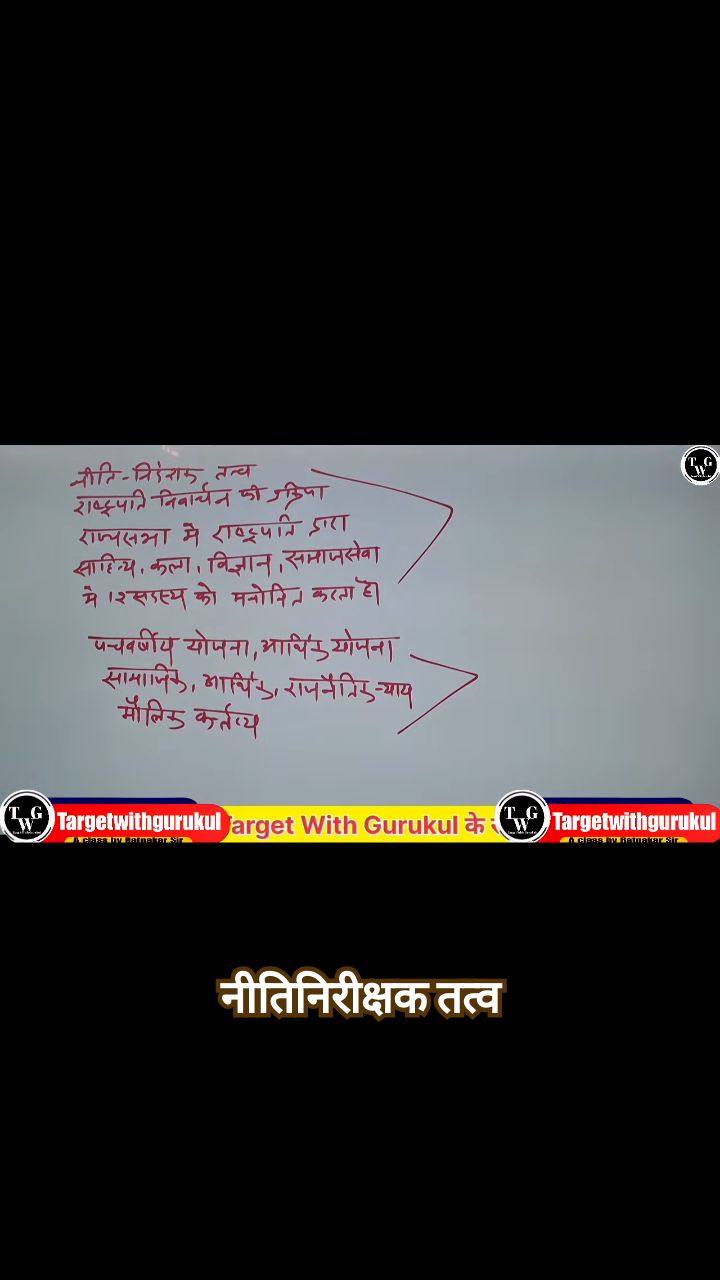 T G
W
नीति-निदेशक तत्व
राष्ट्रपति निर्वाचन की प्रक्रिया
राज्यसभा में राष्ट्रपति द्वारा
साहित्य, कला, विज्ञान, समाजसेवा
में 12 सदस्य को मनोनित करता है।
पंचवर्षीय योजना, आर्थिक योजना
सामाजिक, आर्थिक, राजनैतिक-न्याय
मौलिक कर्तव्य
T G
W
Targetwithgurukul
A class by Ratnakar Sir
Target With Gurukul के
T G
W
Targetwithgurukul
A class by Ratnakar Sir
नीतिनिरीक्षक तत्व